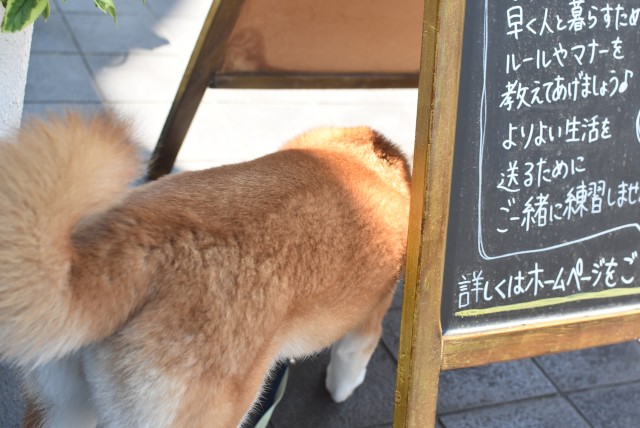 早く人と暮らすため
ルールやマナーを
教えてあげましょう♪
よりよい生活を
送るために
ご一緒に練習しませ
詳しくはホームページをご